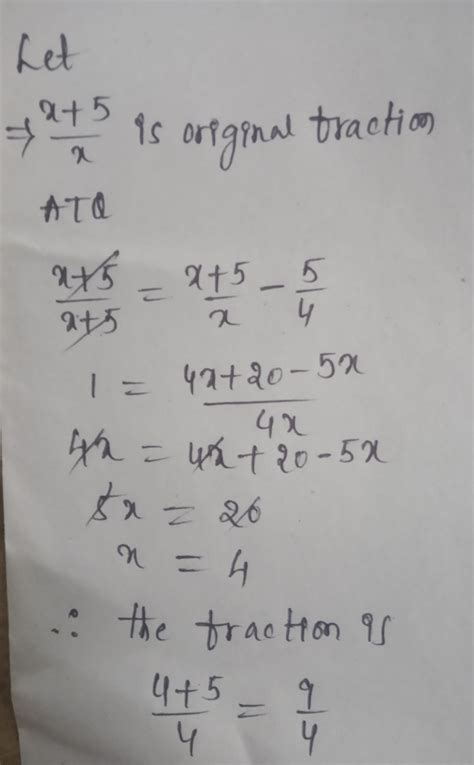 Let
⇒ x+5/x is original traction
ATQ
x+5/x+5 = x+5/x - 5/4
1 = 4x+20-5x/4x
4x = 4x+20-5x
5x = 20
x = 4
∴ the traction is
4+5/4 = 9/4